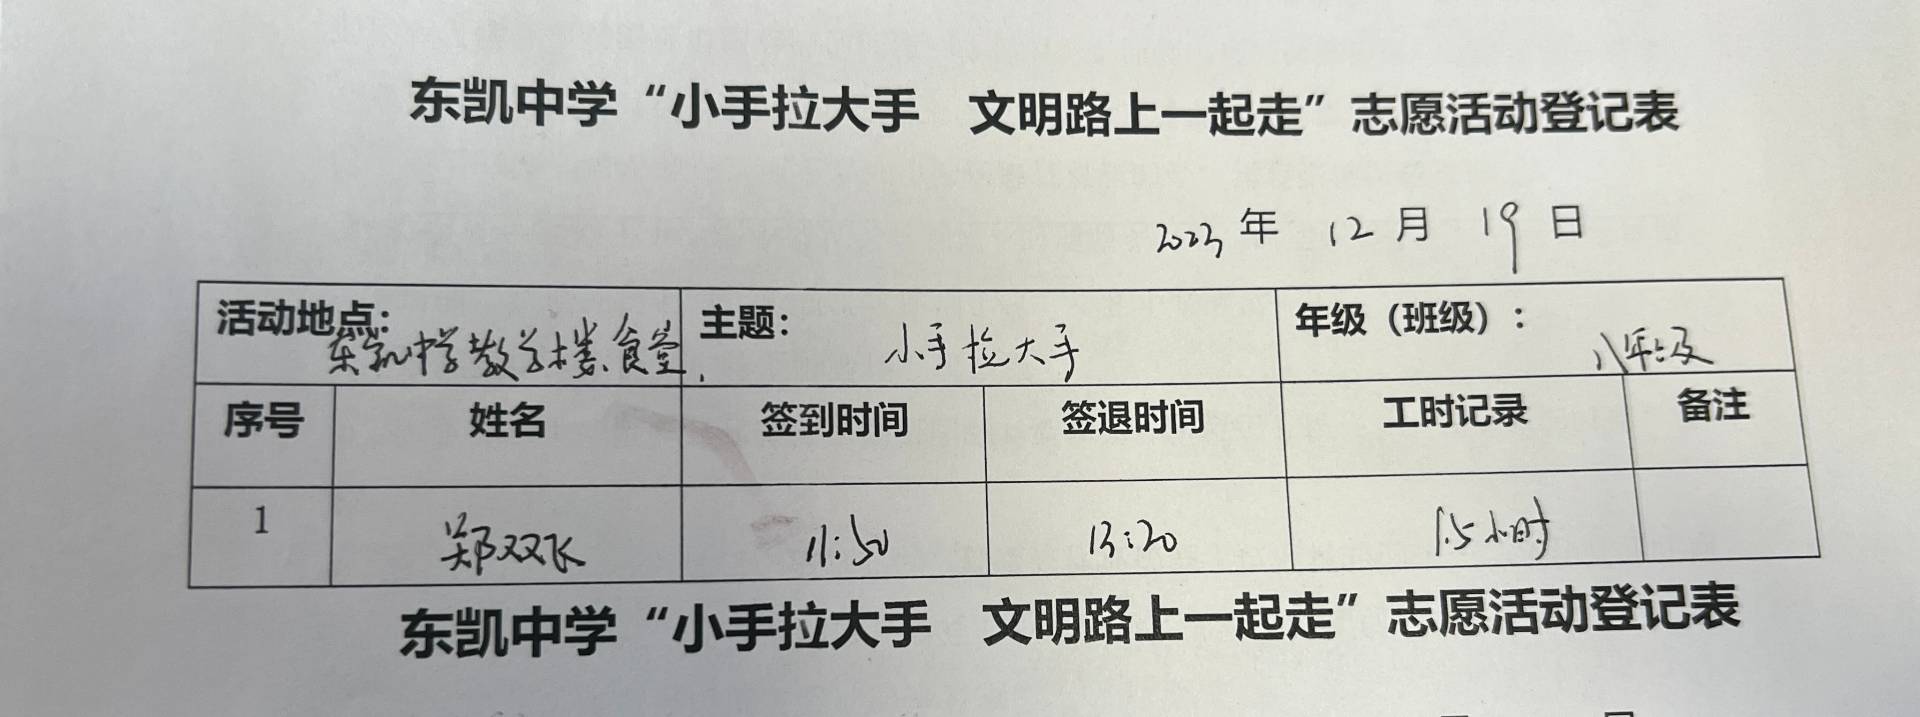 东凯中学“小手拉大手　文明路上一起走”志愿活动登记表
2023年 12月 19日
活动地点：东凯中学教学楼、食堂 主题：小手拉大手 年级（班级）：八年级
序号 姓名 签到时间 签退时间 工时记录 备注
1 郑双飞 11:50 13:20 1.5小时
东凯中学“小手拉大手　文明路上一起走”志愿活动登记表